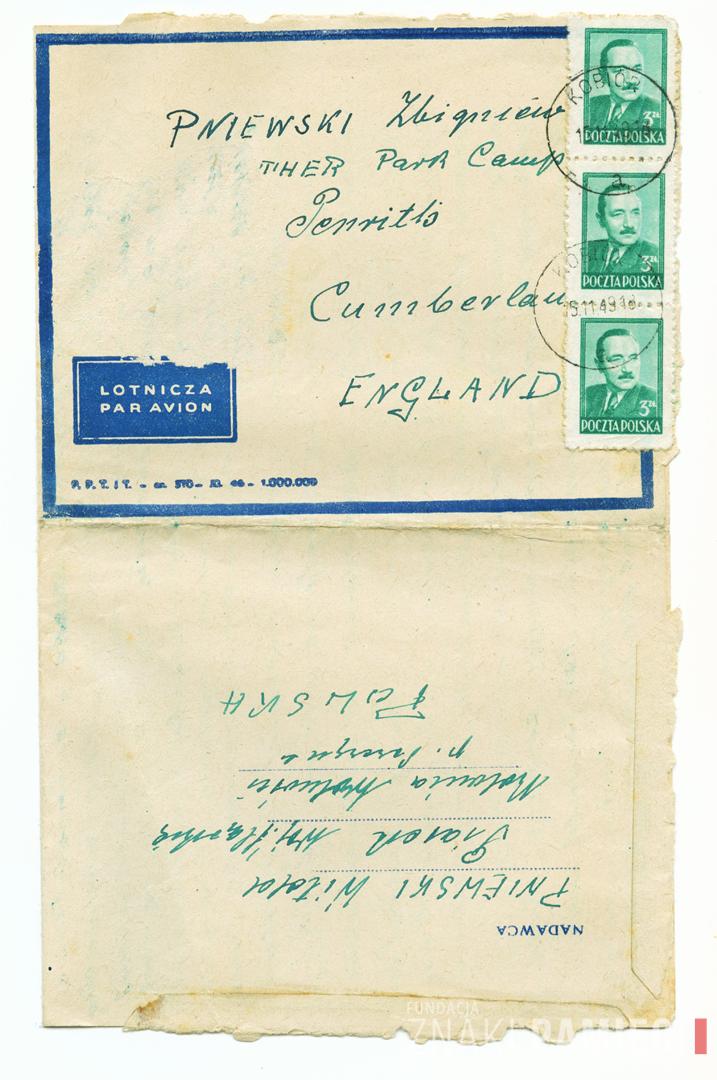 PNIEWSKI Zbigniew
THER Park Camp
Penrith
Cumberlan
ENGLAND
KOBIÓR
3 ZŁ
POCZTA POLSKA
a
3 ZŁ
POCZTA POLSKA
KOBIÓR
5.11.49.18
3 ZŁ
POCZTA POLSKA
LOTNICZA
PAR AVION
P. P. T. i T. – 1.000.000
NADAWCA
PNIEWSKI Witold
Piasek woj. Śląskie
Kolonia
p.
POLSKA
FUNDACJA
ZNAKI PAMIĘCI